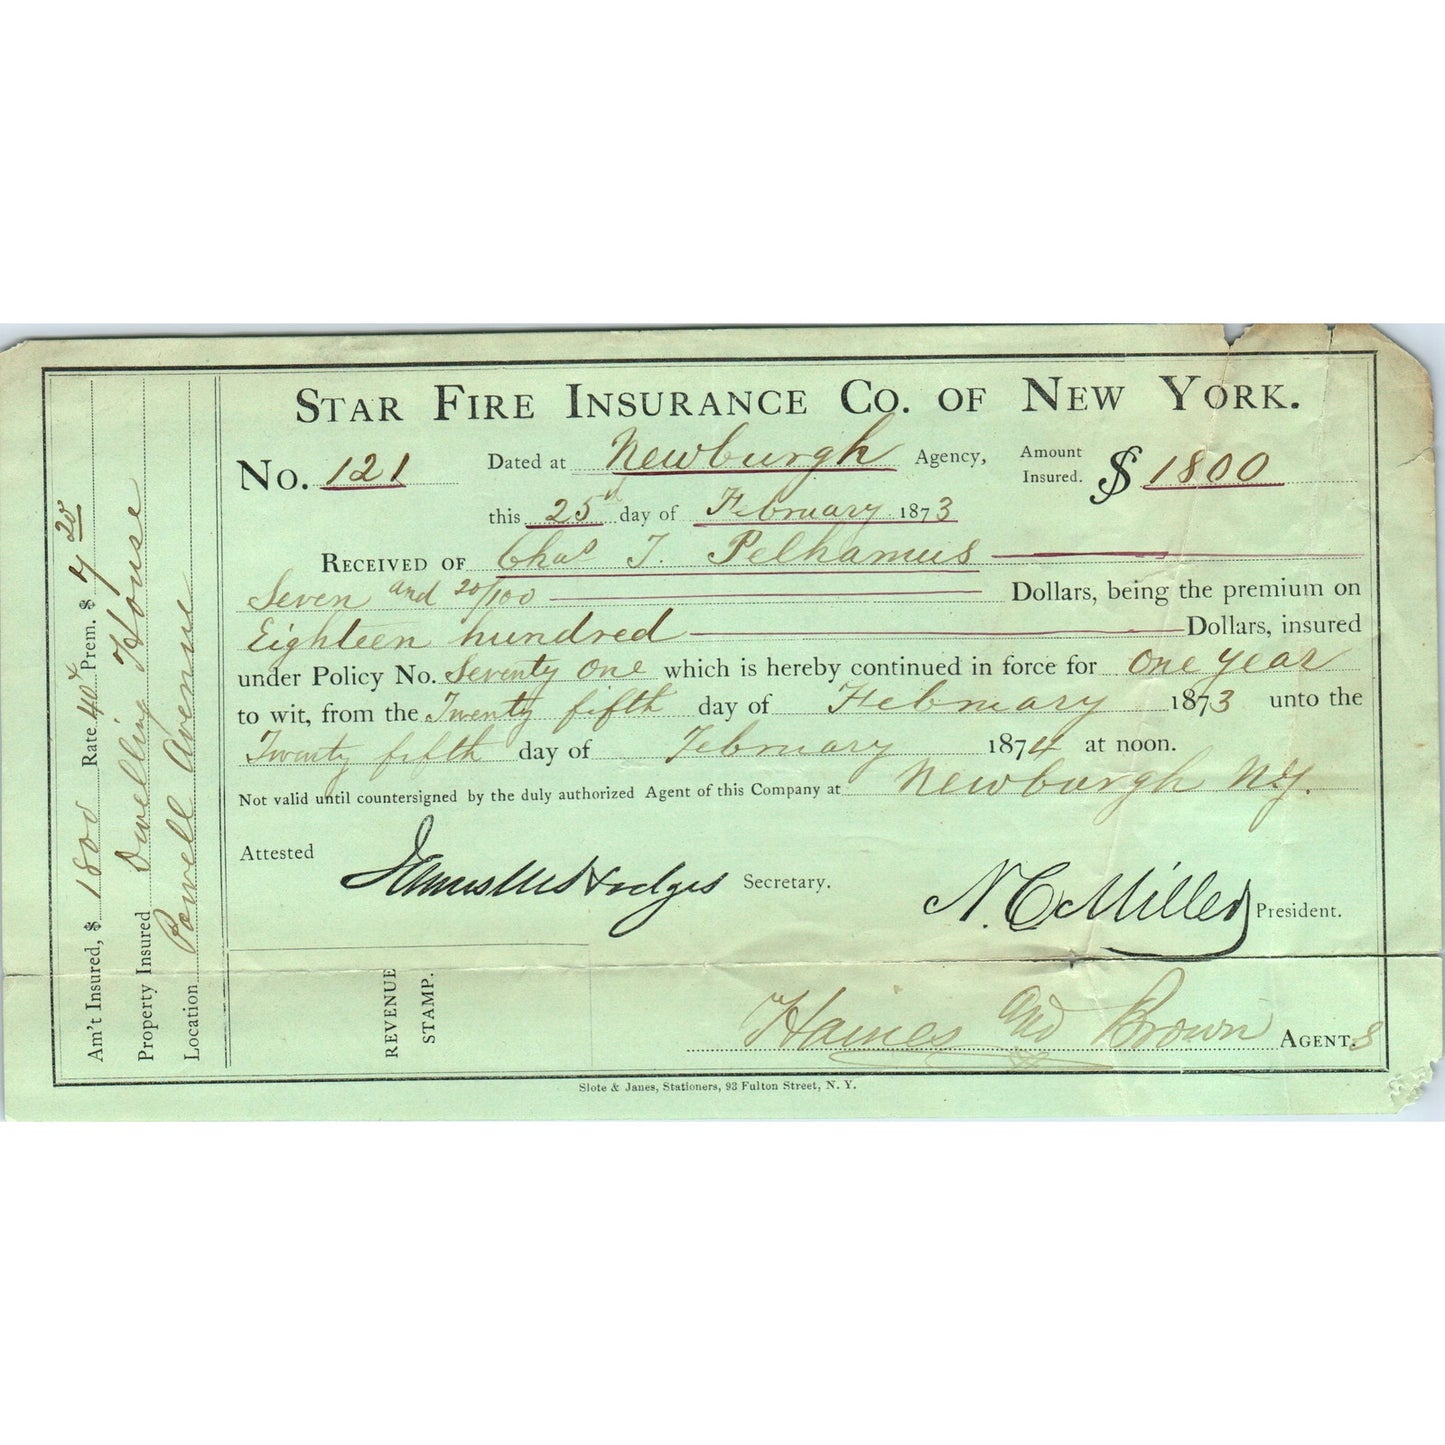 STAR FIRE INSURANCE CO. OF NEW YORK.
No. 121 Dated at Newburgh Agency, Amount Insured. $ 1800
this 25 day of February 1873
RECEIVED OF Chas T. Pelhamus
Seven and 20/100 Dollars, being the premium on
Eighteen hundred Dollars, insured
under Policy No. Seventy One which is hereby continued in force for One Year
to wit, from the Twenty fifth day of February 1873 unto the
Twenty fifth day of February 1874 at noon.
Not valid until countersigned by the duly authorized Agent of this Company at Newburgh N.Y.
Attested James M Hodges Secretary. N. C Miller President.
REVENUE
STAMP.
Haines and Brown AGENT.s
Slote & Janes, Stationers, 93 Fulton Street, N. Y.
Am't Insured, $ 1800 Rate 40 Prem. $ 7 20
Property Insured Dwelling House
Location Powell Avenue